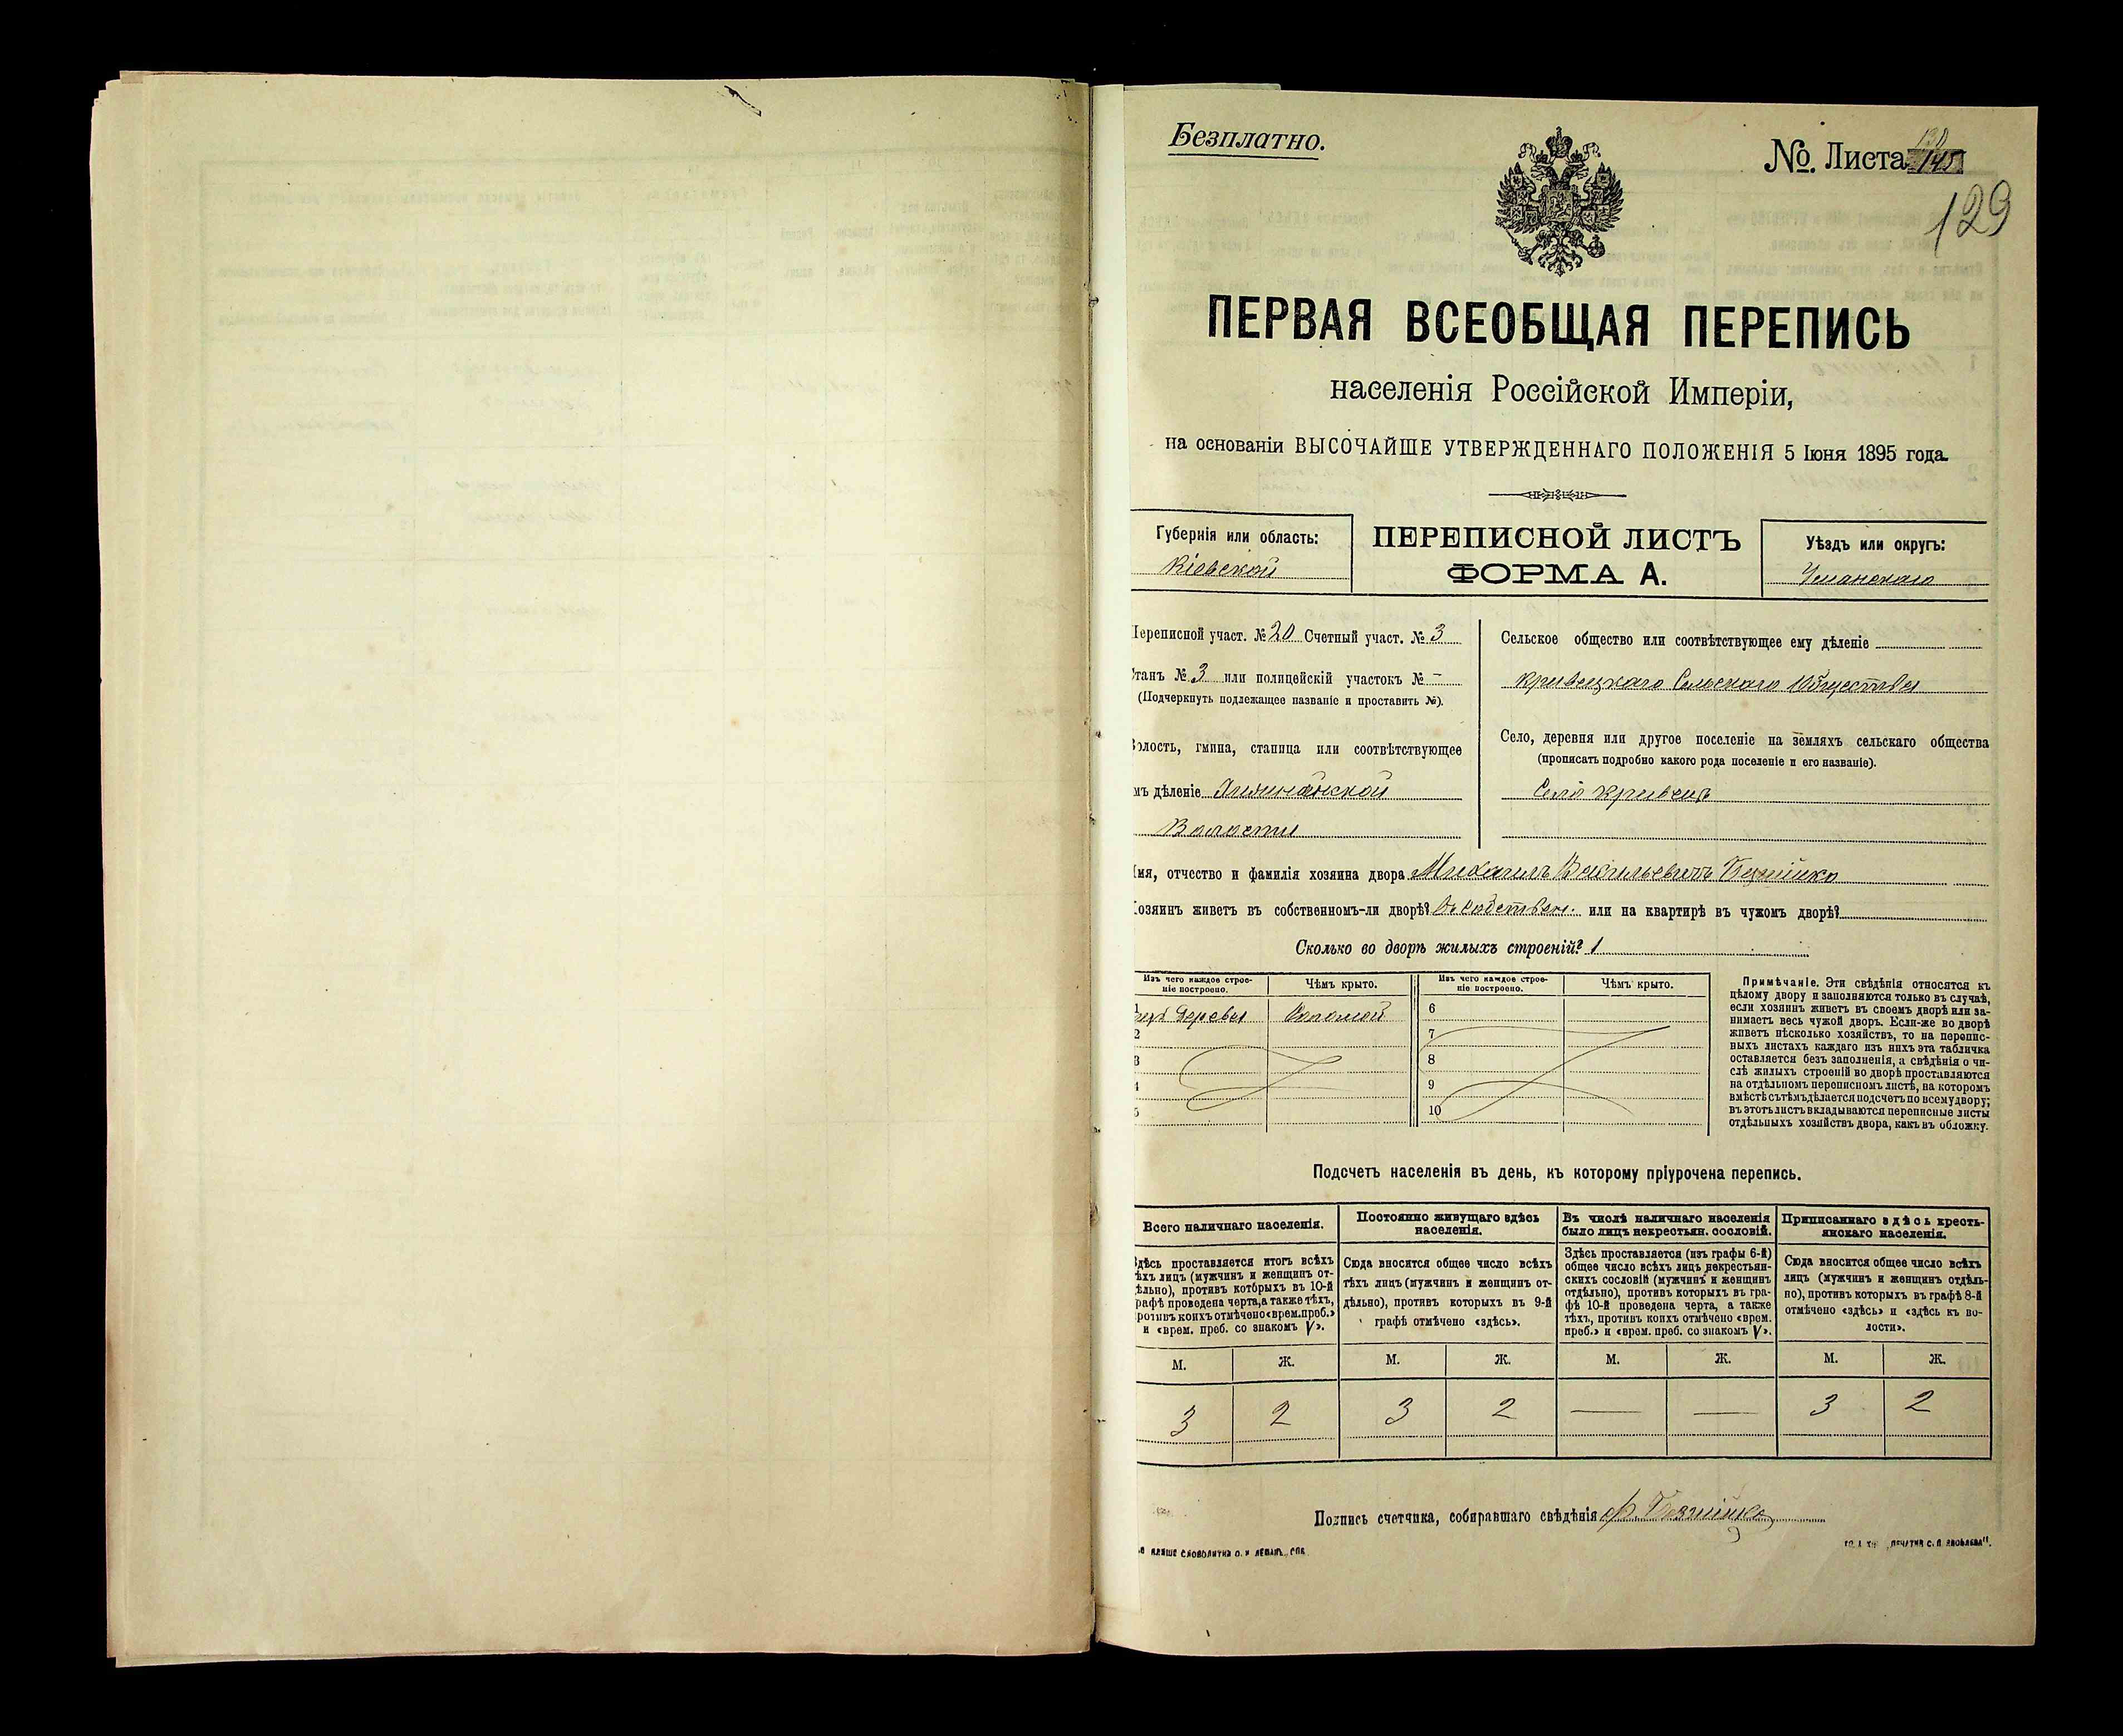 Безплатно.
№. Листа 145
129
ПЕРВАЯ ВСЕОБЩАЯ ПЕРЕПИСЬ
населенія Россійской Имперіи,
на основаніи ВЫСОЧАЙШЕ УТВЕРЖДЕННАГО ПОЛОЖЕНІЯ 5 Іюня 1895 года.
Губернія или область:
Кіевской
ПЕРЕПИСНОЙ ЛИСТЪ
ФОРМА А.
Уѣздъ или округъ:
Уманскаго
Переписной участ. № 20 Счетный участ. № 3
Станъ № 3 или полицейскій участокъ № -
(Подчеркнуть подлежащее названіе и проставить №).
Волость, гмина, станица или соотвѣтствующее
имъ дѣленіе
Волости
Сельское общество или соотвѣтствующее ему дѣленіе
Кривецкаго Сельскаго Общества
Село, деревня или другое поселеніе на земляхъ сельскаго общества
(прописать подробно какого рода поселеніе и его названіе).
Село Кривець
Имя, отчество и фамилія хозяина двора Михаилъ Васильевичъ
Хозяинъ живетъ въ собственномъ-ли дворѣ? Въ Собствен. или на квартирѣ въ чужомъ дворѣ?
Сколько во дворѣ жилыхъ строеній? 1
Изъ чего каждое строе-
ніе построено.
Чѣмъ крыто.
Изъ чего каждое строе-
ніе построено.
Чѣмъ крыто.
1 изъ Дерева Соломой
2
3
4
5
6
7
8
9
10
Примѣчаніе. Эти свѣдѣнія относятся къ
цѣлому двору и заполняются только въ случаѣ,
если хозяинъ живетъ въ своемъ дворѣ или за-
нимаетъ весь чужой дворъ. Если-же во дворѣ
живетъ нѣсколько хозяйствъ, то на перепис-
ныхъ листахъ каждаго изъ нихъ эта табличка
оставляется безъ заполненія, а свѣдѣнія о чи-
слѣ жилыхъ строеній во дворѣ проставляются
на отдѣльномъ переписномъ листѣ, на которомъ
вмѣстѣ съ тѣмъ дѣлается подсчетъ по всему двору;
въ этотъ листъ вкладываются переписные листы
отдѣльныхъ хозяйствъ двора, какъ въ обложку.
Подсчетъ населенія въ день, къ которому пріурочена перепись.
Всего наличнаго населенія.
Здѣсь проставляется итогъ всѣхъ
тѣхъ лицъ (мужчинъ и женщинъ от-
дѣльно), противъ которыхъ въ 10-й
графѣ проведена черта, а также тѣхъ,
противъ коихъ отмѣчено «врем. преб.»
и «врем. преб. со знакомъ V».
Постоянно живущаго здѣсь
населенія.
Сюда вносится общее число всѣхъ
тѣхъ лицъ (мужчинъ и женщинъ от-
дѣльно), противъ которыхъ въ 9-й
графѣ отмѣчено «здѣсь».
Въ числѣ наличнаго населенія
было лицъ некрестьян. сословій.
Здѣсь проставляется (изъ графы 6-й)
общее число всѣхъ лицъ некрестьян-
скихъ сословій (мужчинъ и женщинъ
отдѣльно), противъ которыхъ въ гра-
фѣ 10-й проведена черта, а также
тѣхъ, противъ коихъ отмѣчено «врем.
преб.» и «врем. преб. со знакомъ V».
Приписаннаго здѣсь кресть-
янскаго населенія.
Сюда вносится общее число всѣхъ
лицъ (мужчинъ и женщинъ отдѣль-
но), противъ которыхъ въ графѣ 8-й
отмѣчено «здѣсь» и «здѣсь къ во-
лости».
М. Ж. М. Ж. М. Ж. М. Ж.
3 2 3 2 — — 3 2
Подпись счетчика, собиравшаго свѣдѣнія